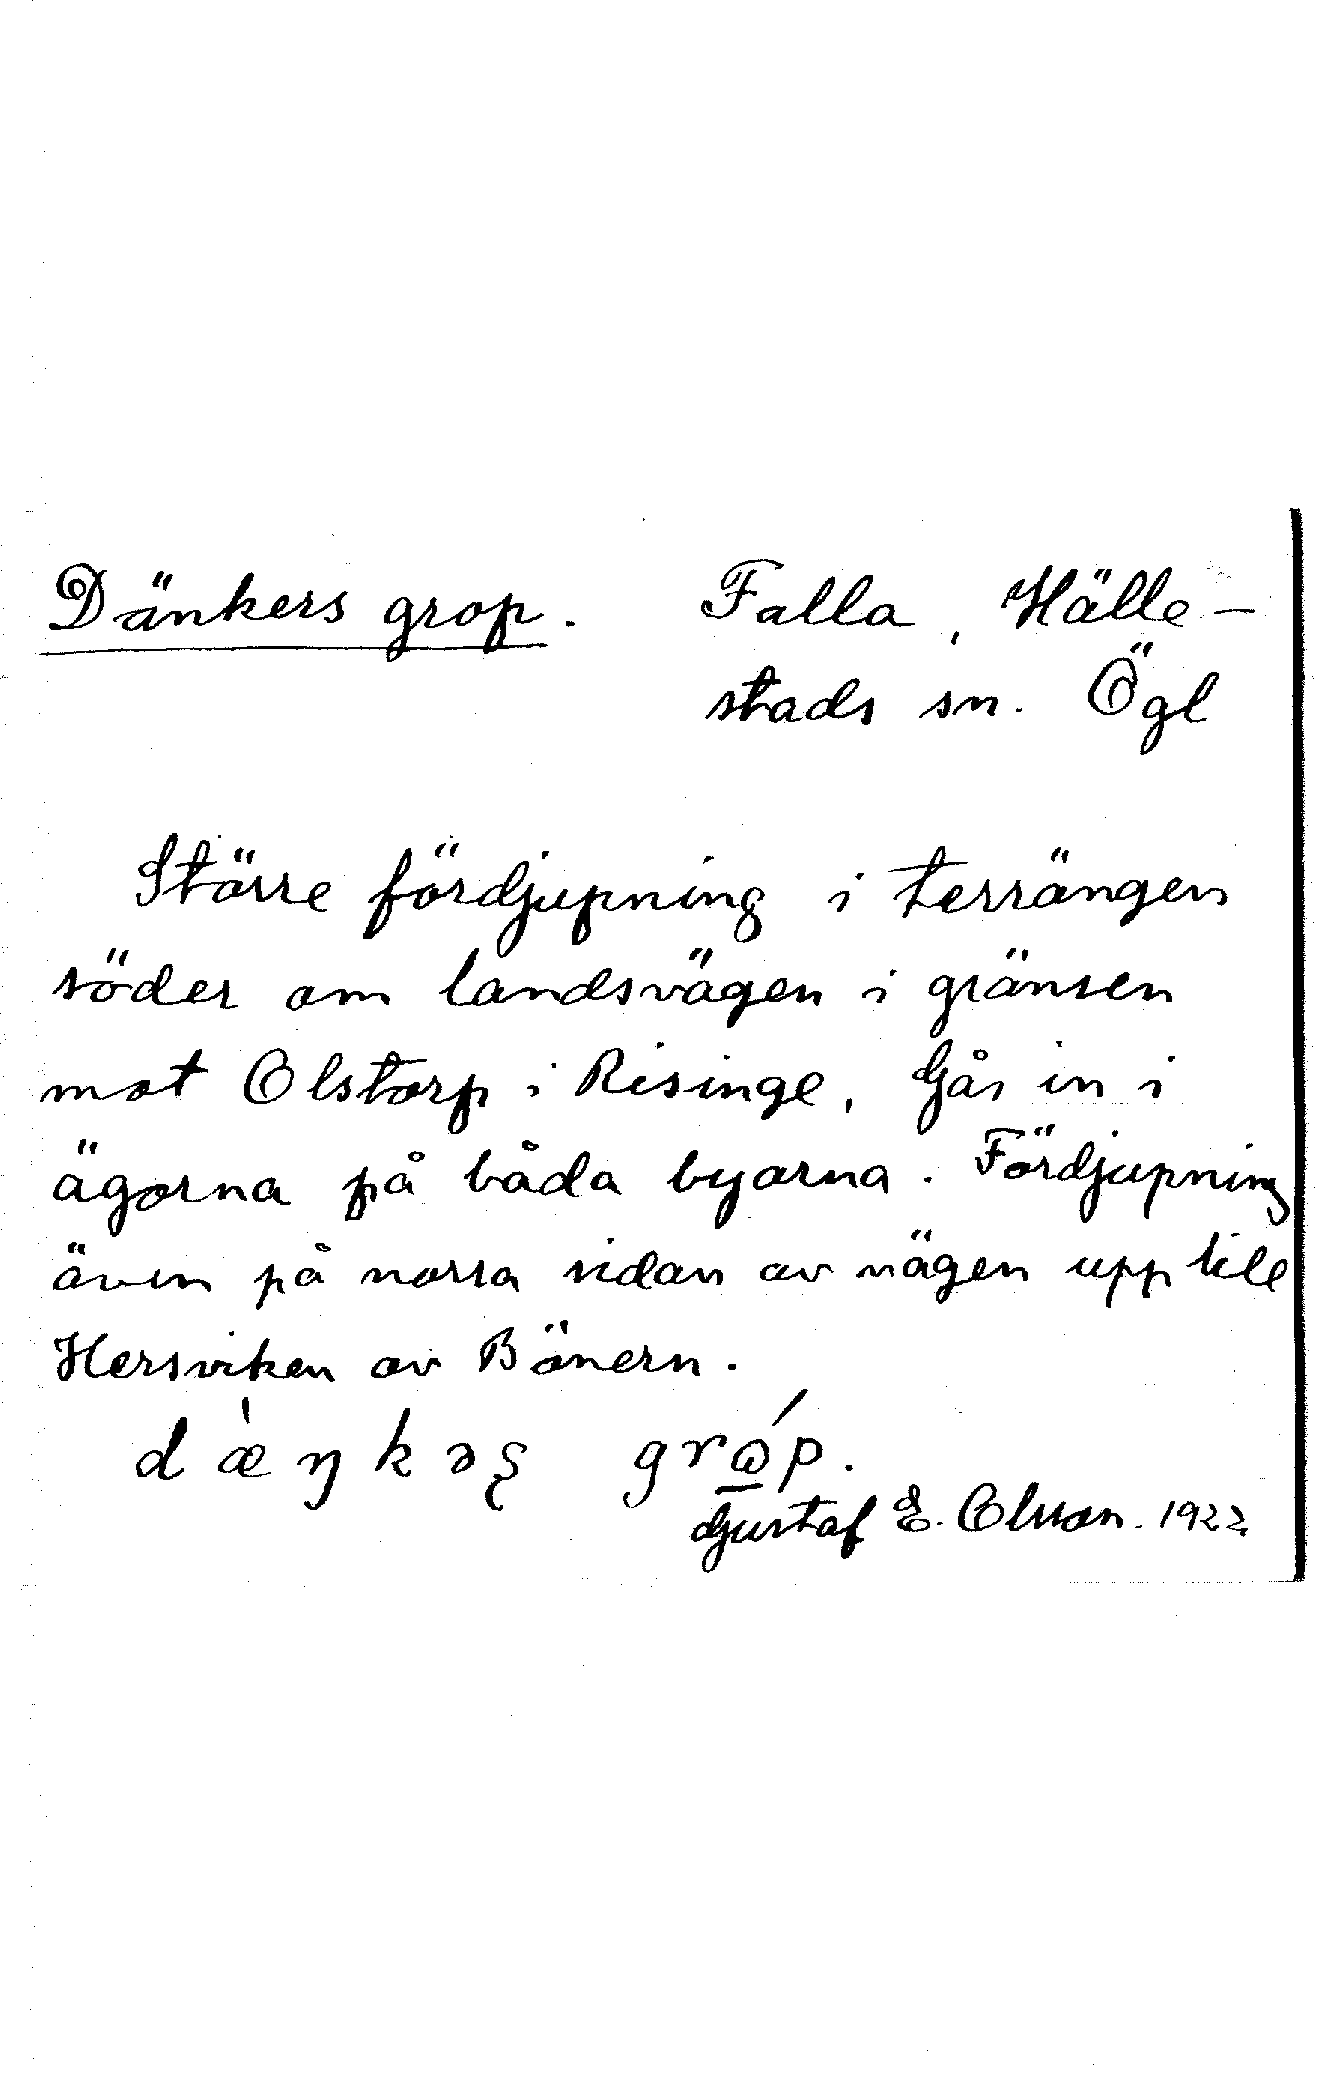 Dänkers grop. Falla, Hälle-
stads sn. Ögl
Större fördjupning i terrängen
söder om landsvägen i gränsen
mot Olstorp i Risinge. Går in i
ägorna på båda byarna. Fördjupning
även på norra sidan av vägen upp till
Hersviken av Bönern.
dæ̀ŋkəʂ
Gustaf E. Olsson. 1922